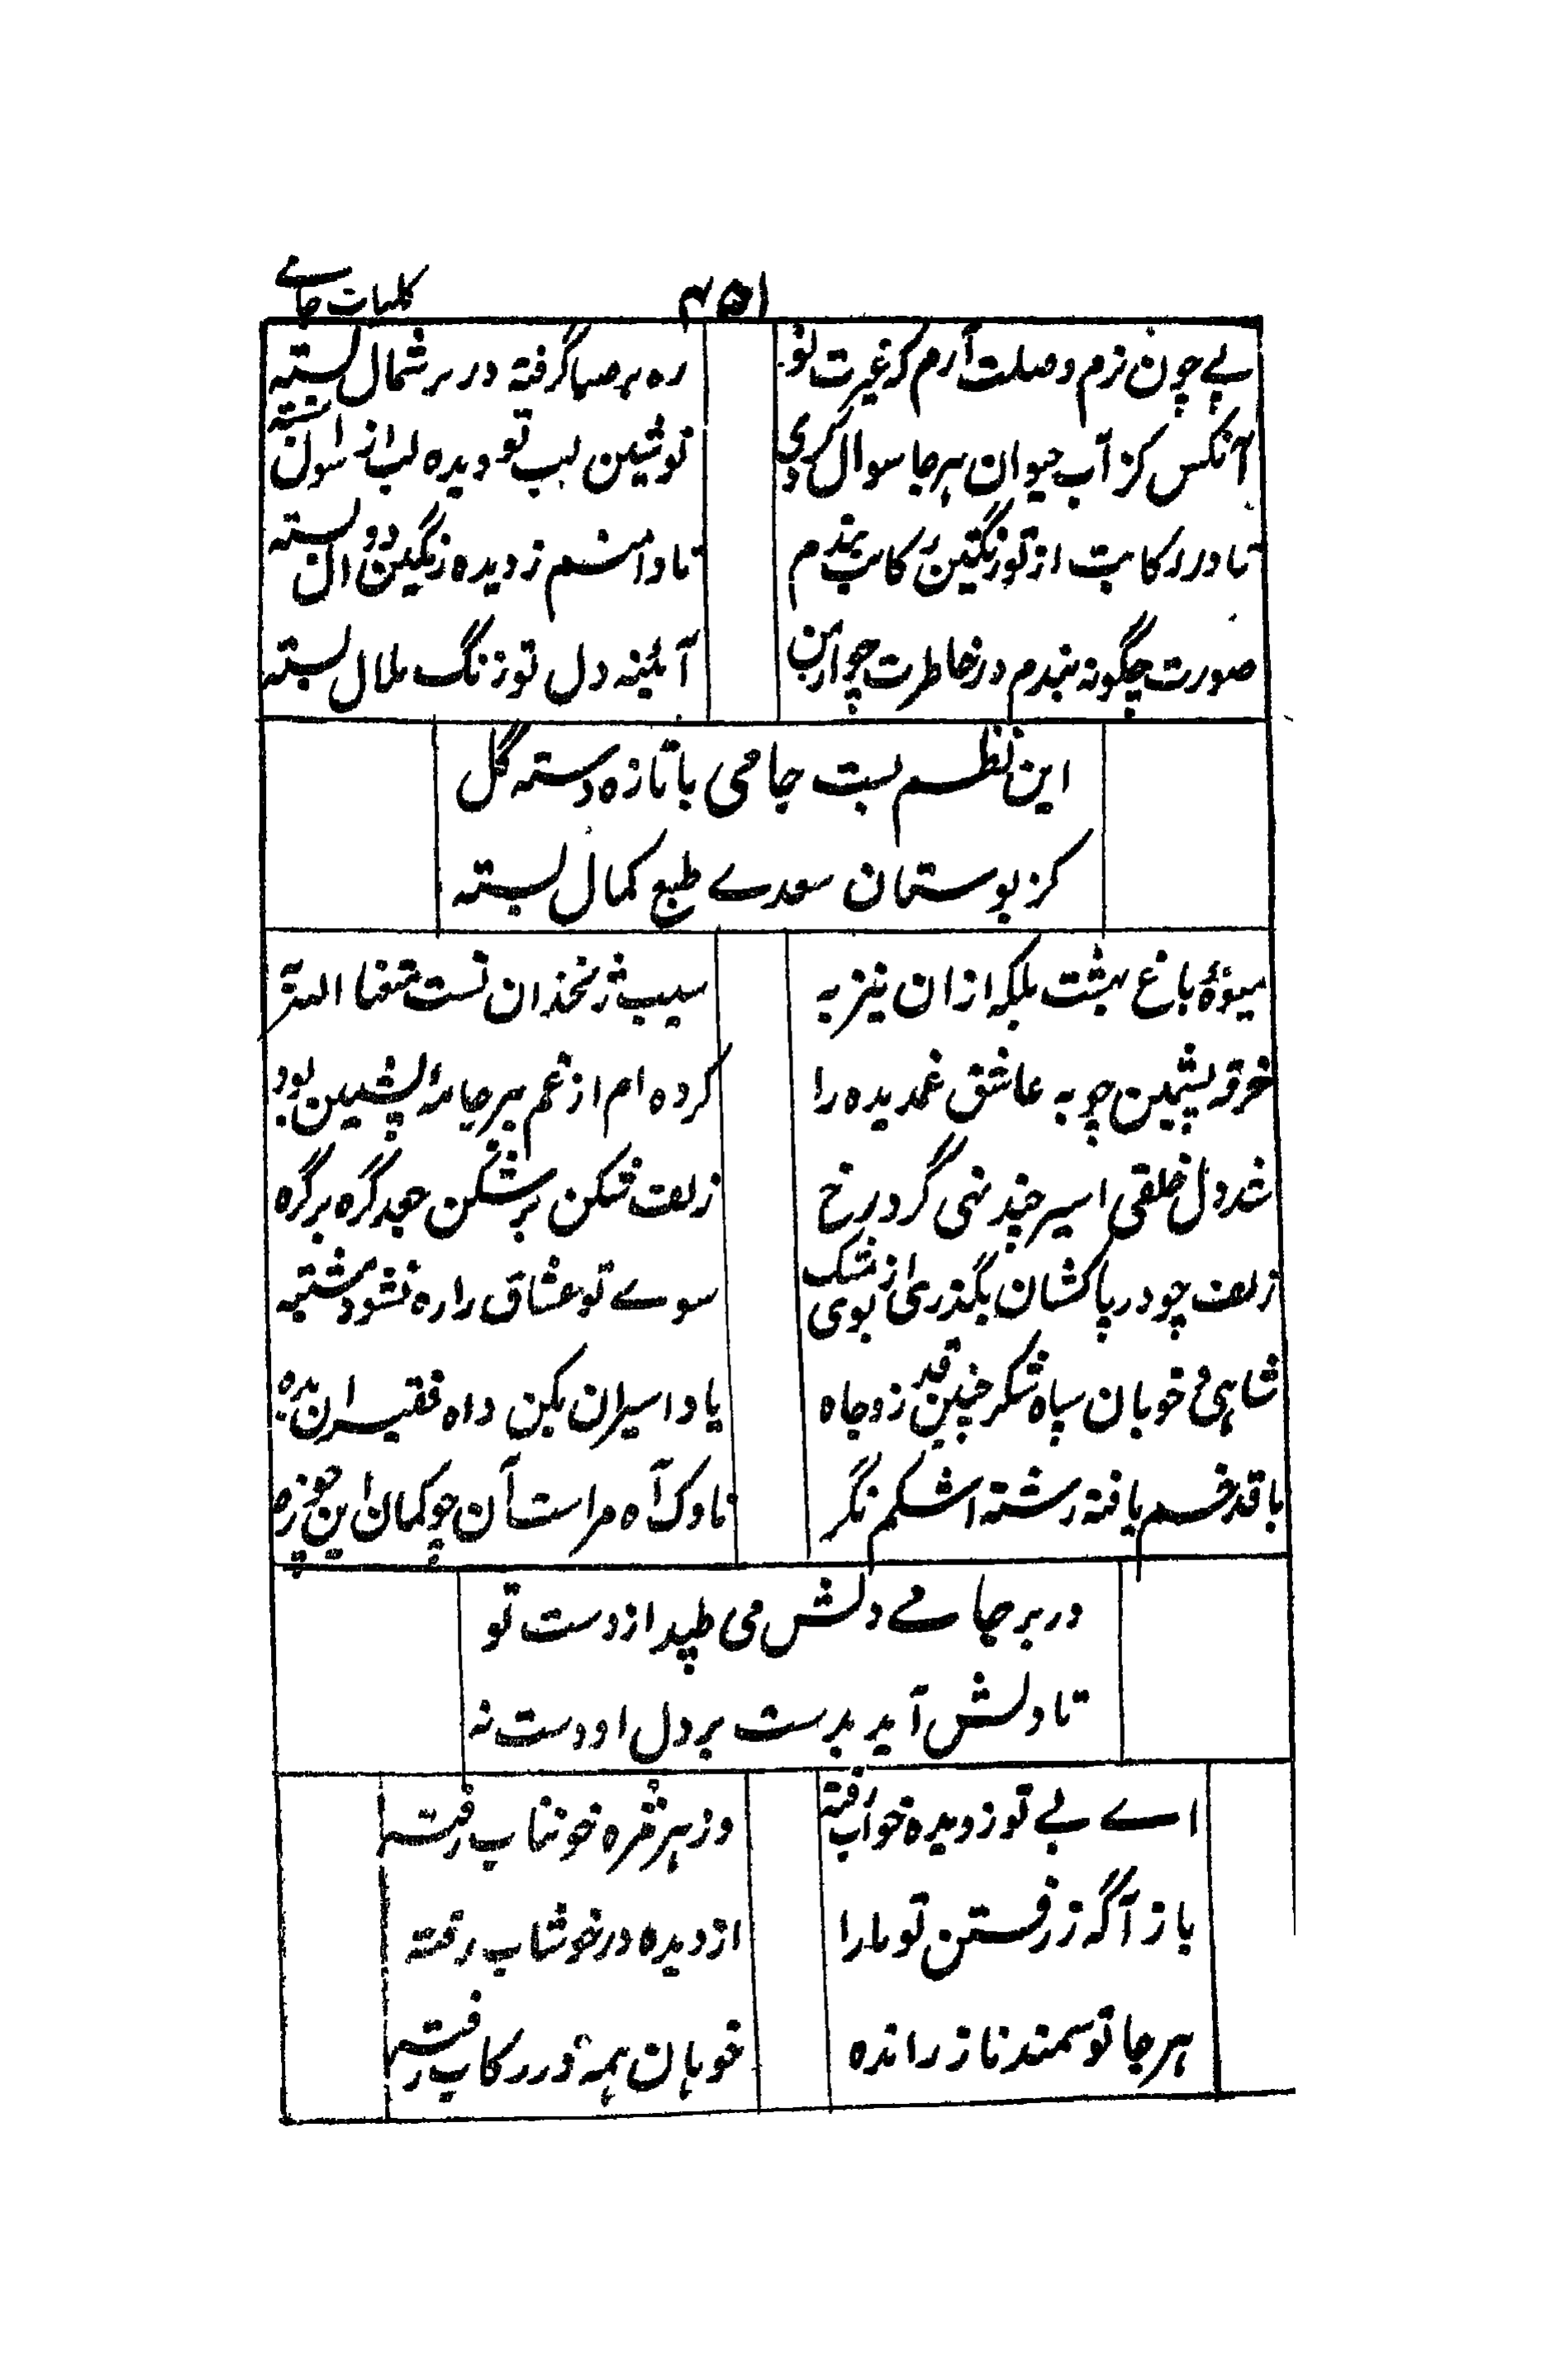 کلیات جامے
۴۵۱
پے چون نرم وصلت آرم کز غیرت تو
ره بر صبا گرفته در بر شمال بسته
آنکس کز آب حیوان هر جا سوال کردی
نوشین لب تو دیده لب از سوال بسته
تا در رکابت از تو رنگین رکاب بندم
تا دامنم ز دیده رنگین دوال بسته
صورت چگونه بندم در خاطرت چو از من
آئینه دل تو زنگ ملال بسته
این نظم بست جامی یا تازه دسته گل
کز بوستان سعدے طبع کمال بسته
میوۀ باغ بهشت بلکه از ان نیز به
سیب زنخدان تست متعنا الله به
خرقه پشمین چو به عاشق غمدیده را
کرده ام از غم ببر جامۀ پشمین بود
شد دل خلقی اسیر چند نهی گرد رخ
زلف شکن بر شکن جعد گره بر گره
زلف چو در پا کشان بگذری از مشک بوی
سوے تو عشاق را ره نشود مشتبه
شاهی و خوبان سپاه شکر چنین قدر و جاه
یاد اسیران بکن داه فقیران بده
با قد خم یافته رشته اشکم نگر
ناوک آه مراست آن چو کمان این چو زه
در بر جامے دلش می طپد از دست تو
تا دلش آید بدست بر دل او دست نه
اے بے تو ز دیده خواب رفته
وز هر مژه خونناب رفته
باز آگه ز رفتن تو ما را
از دیده در خوشاب رفته
هر جا تو سمند ناز رانده
خوبان همه در رکاب رفته